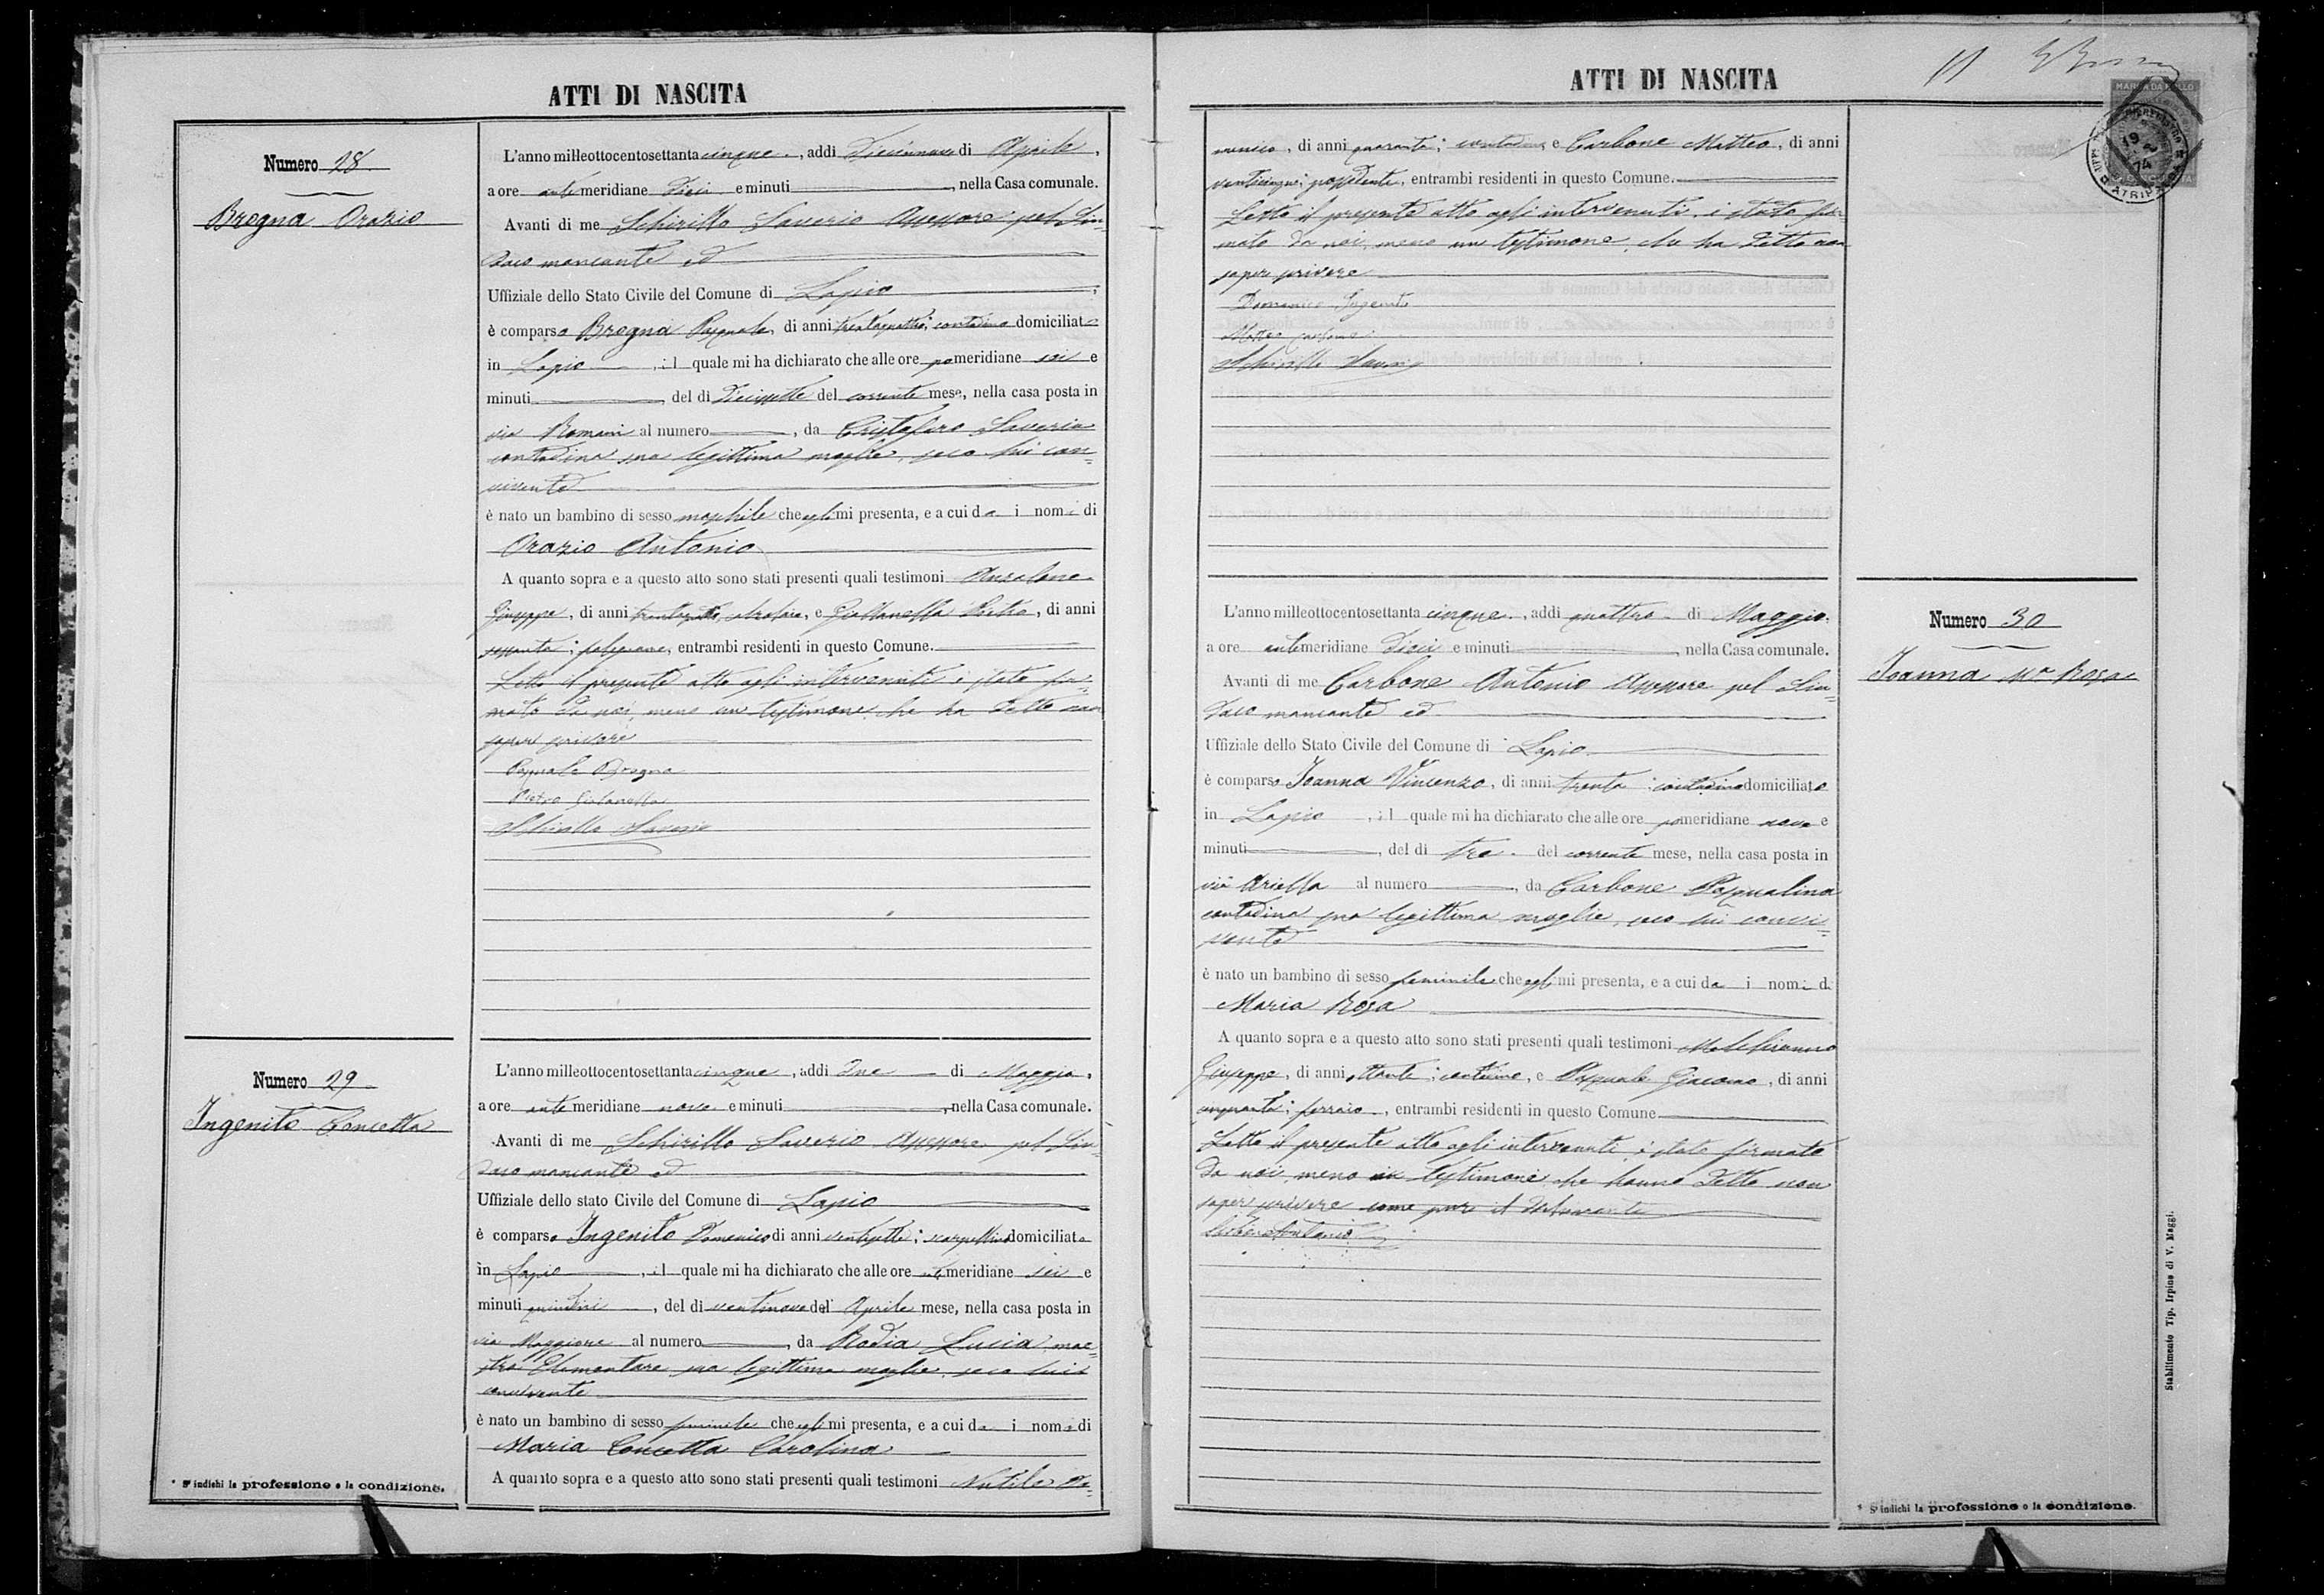 ATTI DI NASCITA
Numero 28
Bregna Orazio
L'anno milleottocentosettanta cinque, addì Diciannove di Aprile,
a ore antemeridiane dieci e minuti, nella Casa comunale.
Avanti di me Schirillo Saverio Assessore pel Sin=
daco mancante ed
Uffiziale dello Stato Civile del Comune di Lapio
è comparso Bregna Pasquale, di anni trentaquattro; contadino domiciliato
in Lapio, il quale mi ha dichiarato che alle ore pomeridiane sei e
minuti, del dì Diciassette del corrente mese, nella casa posta in
via Romani al numero, da Cristofaro Saveria
contadina sua legittima moglie, seco lui con=
vivente
è nato un bambino di sesso maschile che egli mi presenta, e a cui da i nomi di
Orazio Antonio
A quanto sopra e a questo atto sono stati presenti quali testimoni Anzalone
Giuseppe, di anni, e Giallanella Pietro, di anni
sessanta; falegname, entrambi residenti in questo Comune.
Letto il presente atto agli intervenuti, è stato fir=
mato da noi, meno un testimone che ha detto non
sapere scrivere
Pasquale Bregna
Pietro Giallanella
Schirillo Saverio
Numero 29
Ingenito Concetta
L'anno milleottocentosettanta cinque, addì due di Maggio,
a ore antemeridiane nove e minuti, nella Casa comunale.
Avanti di me Schirillo Saverio Assessore pel Sin=
daco mancante ed
Uffiziale dello stato Civile del Comune di Lapio
è comparso Ingenito Domenico di anni ventisette; scarpellino domiciliato
in Lapio, il quale mi ha dichiarato che alle ore antemeridiane sei e
minuti quindici, del dì ventinove del Aprile mese, nella casa posta in
via Maggiore al numero, da Rodia Lucia mae=
stra Elementare sua legittima moglie, seco lui
convivente
è nato un bambino di sesso feminile che egli mi presenta, e a cui da i nomi di
Maria Concetta Carolina
A quanto sopra e a questo atto sono stati presenti quali testimoni Nutile Do=
* S'indichi la professione o la condizione.
ATTI DI NASCITA
11
menico, di anni quaranta; contadino, e Carbone Matteo, di anni
venticinque; possidente, entrambi residenti in questo Comune.
Letto il presente atto agli intervenuti, è stato fir=
mato da noi, meno un testimone che ha detto non
sapere scrivere
Domenico Ingenito
Matteo Carbone
Schirillo Saverio
Numero 30
Ioanna Ma Rosa
L'anno milleottocentosettanta cinque, addì quattro di Maggio,
a ore antemeridiane dieci e minuti, nella Casa comunale.
Avanti di me Carbone Antonio Assessore pel Sin=
daco mancante ed
Uffiziale dello Stato Civile del Comune di Lapio
è comparso Ioanna Vincenzo, di anni trenta; contadino domiciliato
in Lapio, il quale mi ha dichiarato che alle ore pomeridiane nove e
minuti, del dì tre del corrente mese, nella casa posta in
via Ariella al numero, da Carbone Pasqualina
contadina sua legittima moglie, seco lui convi=
vente
è nato un bambino di sesso feminile che egli mi presenta, e a cui da i nomi di
Maria Rosa
A quanto sopra e a questo atto sono stati presenti quali testimoni
Giuseppe, di anni ottanta; contadino, e Pasquale Giacomo, di anni
cinquanta; ferraio, entrambi residenti in questo Comune
Letto il presente atto agli intervenuti, è stato firmato
da noi, meno testimoni che hanno detto non
sapere scrivere come pure il dichiarante
Antonio
* S'indichi la professione o la condizione.
Stabilimento Tip. Irpino di V. Maggi.